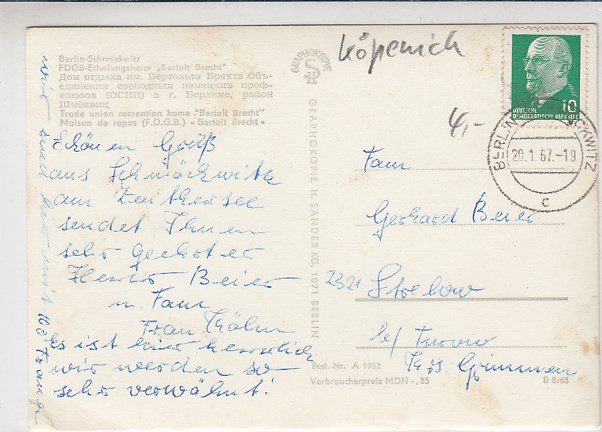 Berlin-Schmöckwitz
FDGB-Erholungsheim „Bertolt Brecht"
Дом отдыха им. Бертольта Брехта Объ-
единения свободных немецких проф-
союзов (ОСНП) в г. Берлине, район
Шмёквиц
Trade union recreation home "Bertolt Brecht"
Maison de repos (F.D.G.B.) «Bertolt Brecht»
Schönen Gruß
aus Schmöckwitz
am Zeuthersee
sendet Ihnen
sehr geehrter
Herrn Beier
u. Fam
Frau Köhn
es ist hier herrlich
wir werden so-
sehr verwöhnt!
wir sind hier mit 100 Frauen
GRAPHOKOPIE
GRAPHOKOPIE H. SANDER KG, 1071 BERLIN
Köpenick
4,-
10
DEUTSCHE
DEMOKRATISCHE REPUBLIK
BERLIN SCHMÖCKWITZ
20.1.67.-19
c
Fam
Gerhard Beier
2321 Strelow
b/
Krs Grimmen
Best.-Nr. A 1952
Verbraucherpreis MDN -,25
B 8/65